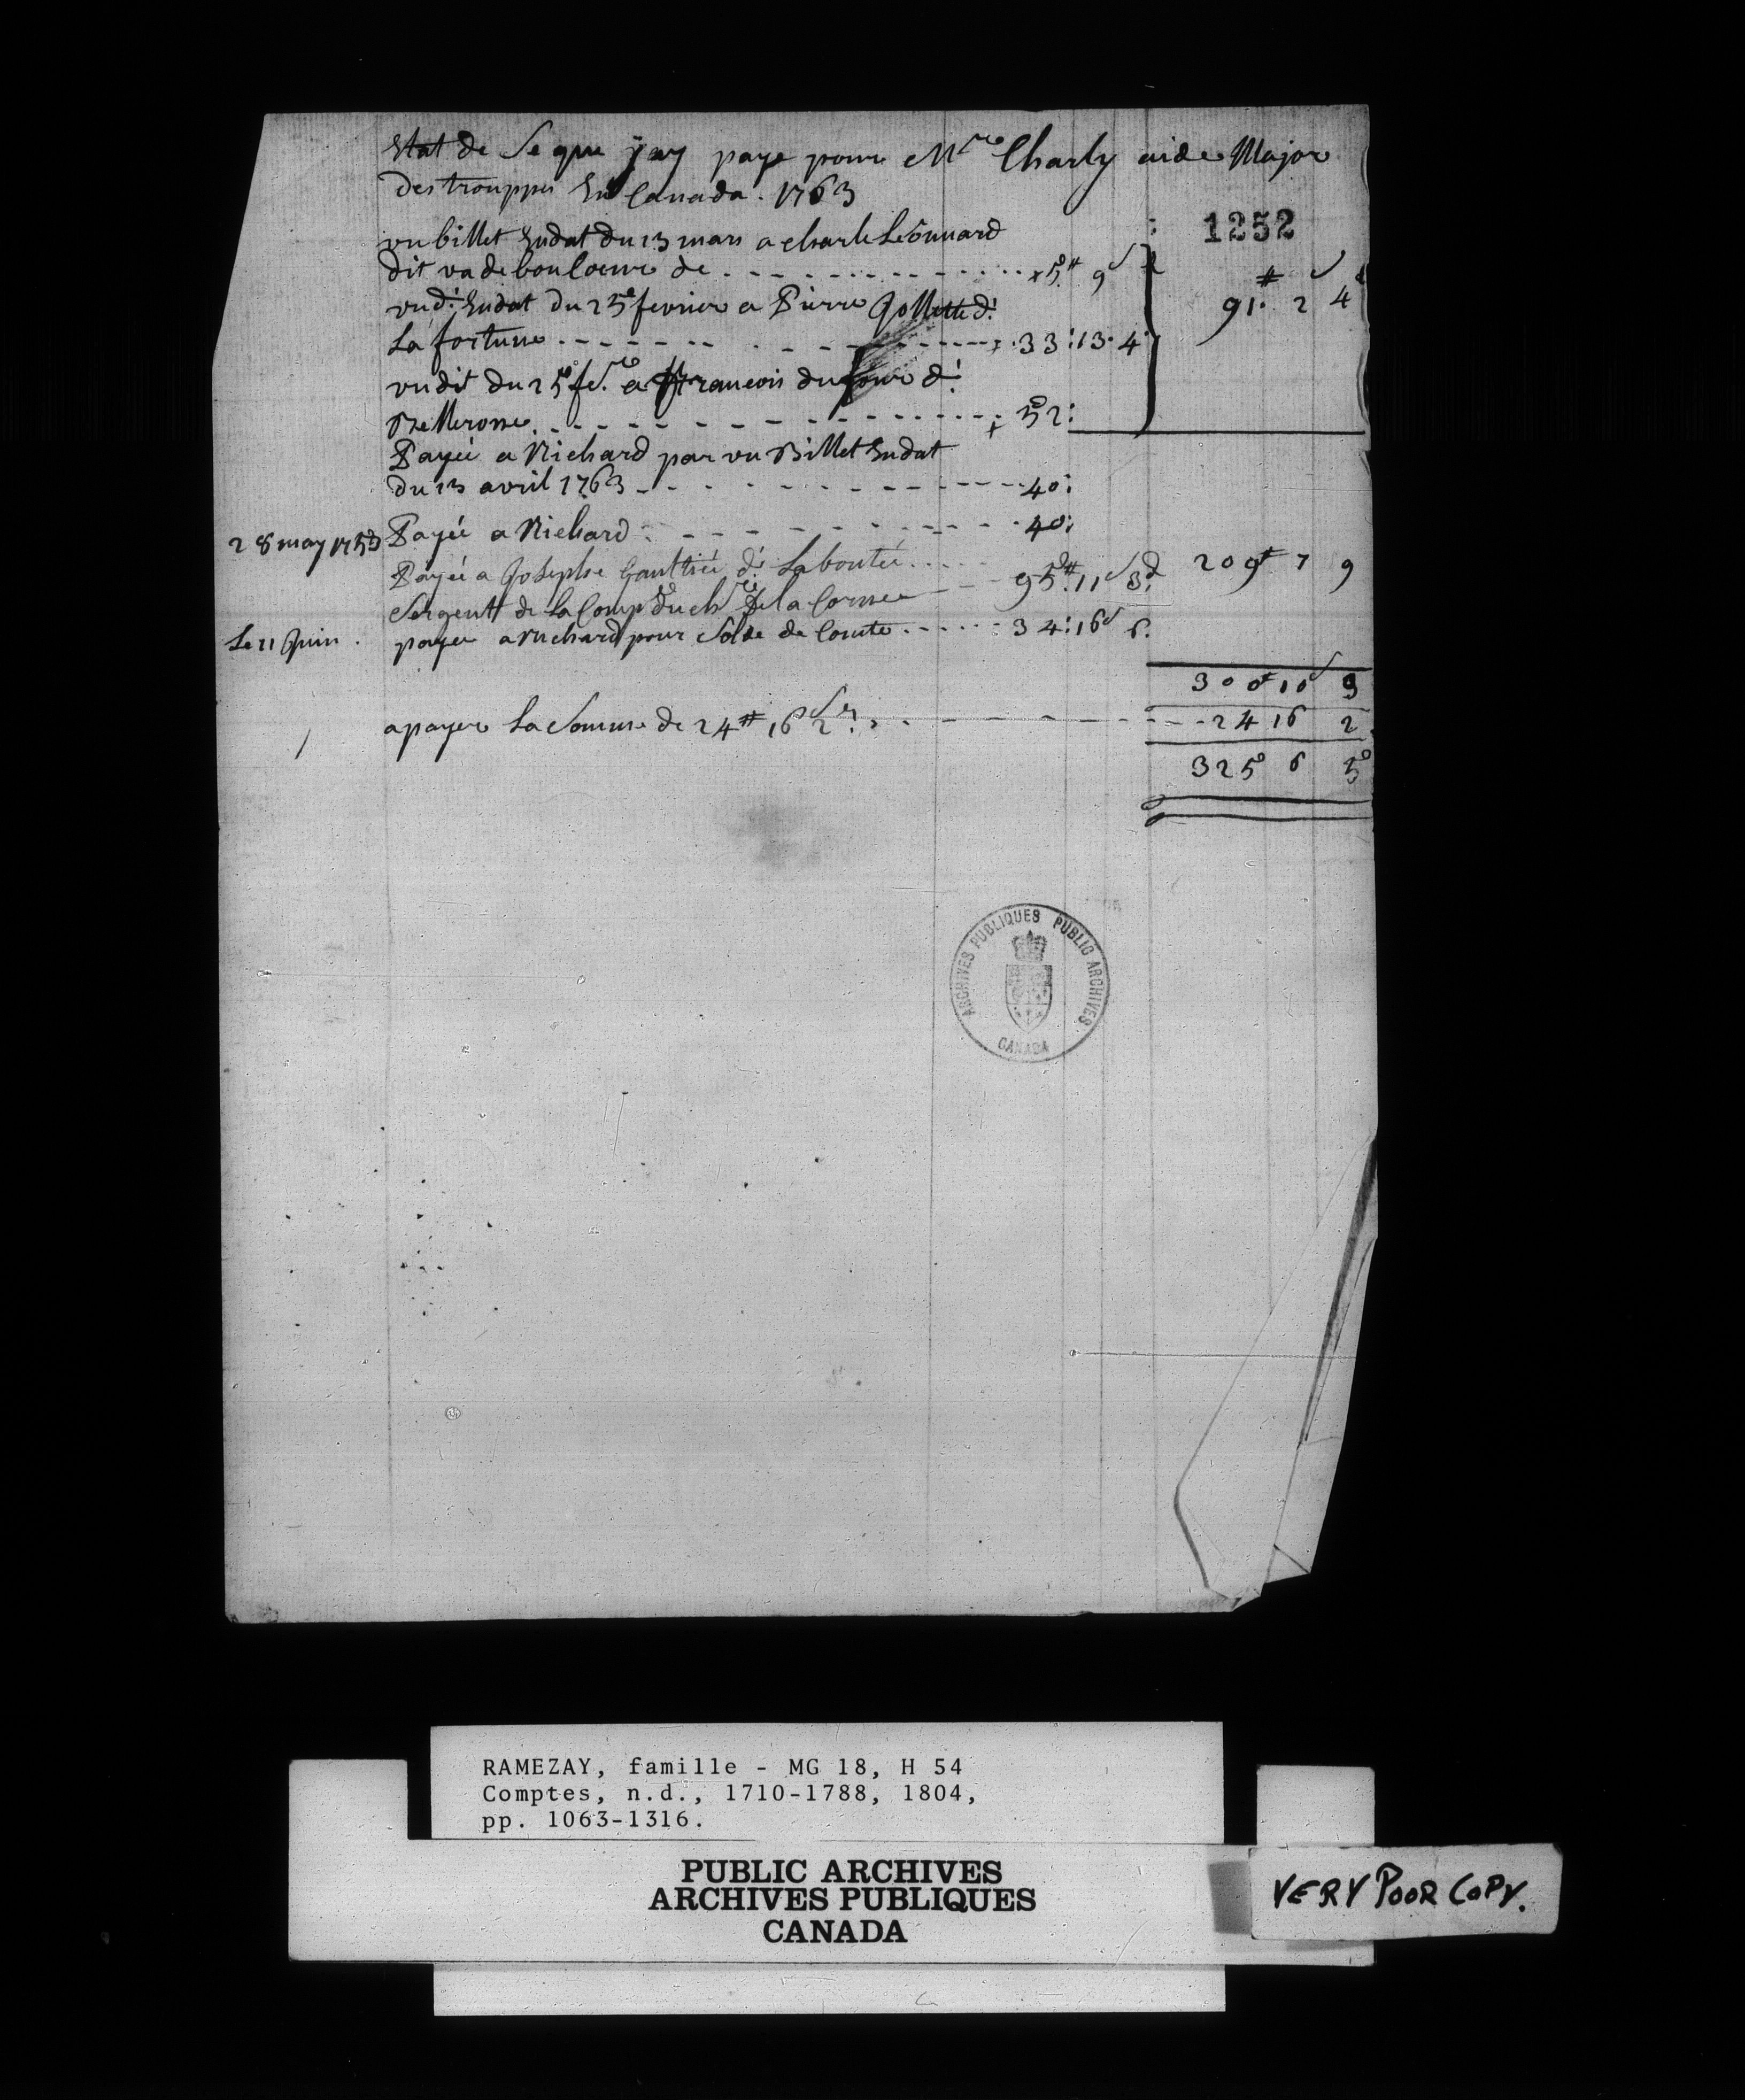 Estat de Se que jay paye pour Mr Charly aide Major
des trouppes En Canada. 1763
1252
un billet Endat du 13 mars a charle Leonnard
dit va de bon Coeur de . . . . . . . + 5# 9s
und: Endat du 25 fevrier a Pierre Gollette d:
La fortune . . . . . . . + 33:13.4
91# 2s 4d
un dit du 25 fer a francois dufour d:
Bellerosse . . . . . . . + 52:
Payée a Richard par un Billet Endat
du 13 avril 1763 . . . . . . . 40:
28 may 1763 Payée a Richard . . . . . . . 40:
Payée a Joseph Gaultiée d: Labontée . . . . .
Sergentt de La Comp du chr De la Corne 95#:11s 3d 209# 7 9
Le 11 Juin . payer a Richard pour Solde de Comte . . . . . . 34:16s 6.
300# 10s 9
a payer La Somme de 24# 16s 2 . . . . . . . 24 16 2
325 6 5
ARCHIVES PUBLIQUES PUBLIC ARCHIVES
CANADA
RAMEZAY, famille - MG 18, H 54
Comptes, n.d., 1710-1788, 1804,
pp. 1063-1316.
PUBLIC ARCHIVES
ARCHIVES PUBLIQUES
CANADA
VERY POOR COPY.